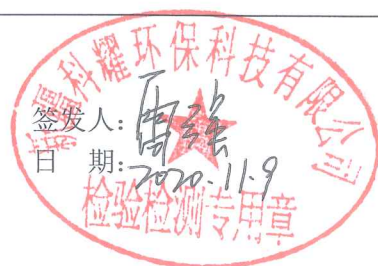 科耀环保科技有限公司
签发人:
日 期: 2020.11.9
检验检测专用章